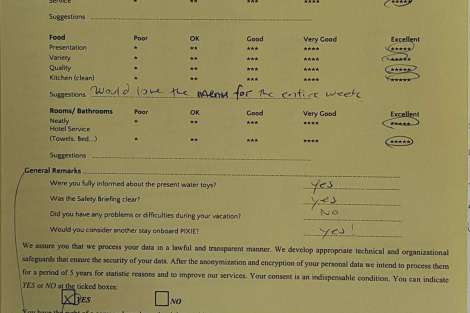 Service * ** *** **** *****
Suggestions
Food Poor OK Good Very Good Excellent
Presentation * ** *** **** *****
Variety * ** *** **** *****
Quality * ** *** **** *****
Kitchen (clean) * ** *** **** *****
Suggestions Would love the menu for the entire week
Rooms/ Bathrooms Poor OK Good Very Good Excellent
Neatly * ** *** **** *****
Hotel Service
(Towels, Bed...) * ** *** **** *****
Suggestions
General Remarks
Were you fully informed about the present water toys? yes
Was the Safety Briefing clear? yes
Did you have any problems or difficulties during your vacation? NO
Would you consider another stay onboard PIXIE? yes!
We assure you that we process your data in a lawful and transparent manner. We develop appropriate technical and organizational
safeguards that ensure the security of your data. After the anonymization and encryption of your personal data we intend to process them
for a period of 5 years for statistic reasons and to improve our services. Your consent is an indispensable condition. You can indicate
YES or NO at the ticked boxes:
X YES NO
You have the right of